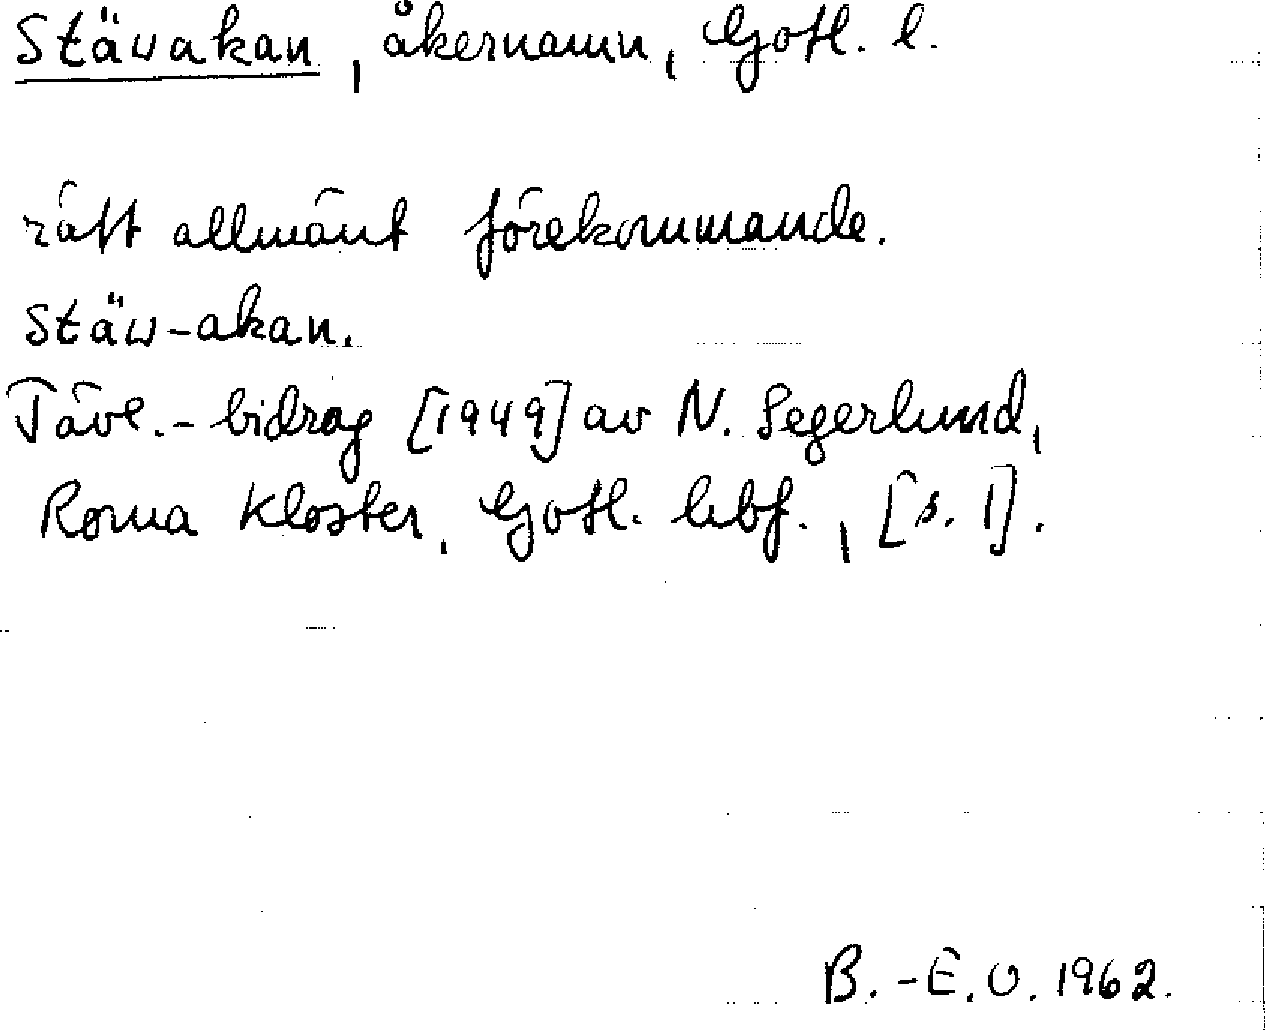 Stävakan, åkernamn, Gotl. l.
rätt allmänt förekommande.
Stäv-akan.
Tävl.-bidrag [1949] av N. Segerlund,
Roma Kloster, Gotl. lbf., [s. 1].
B.-E.O. 1962.